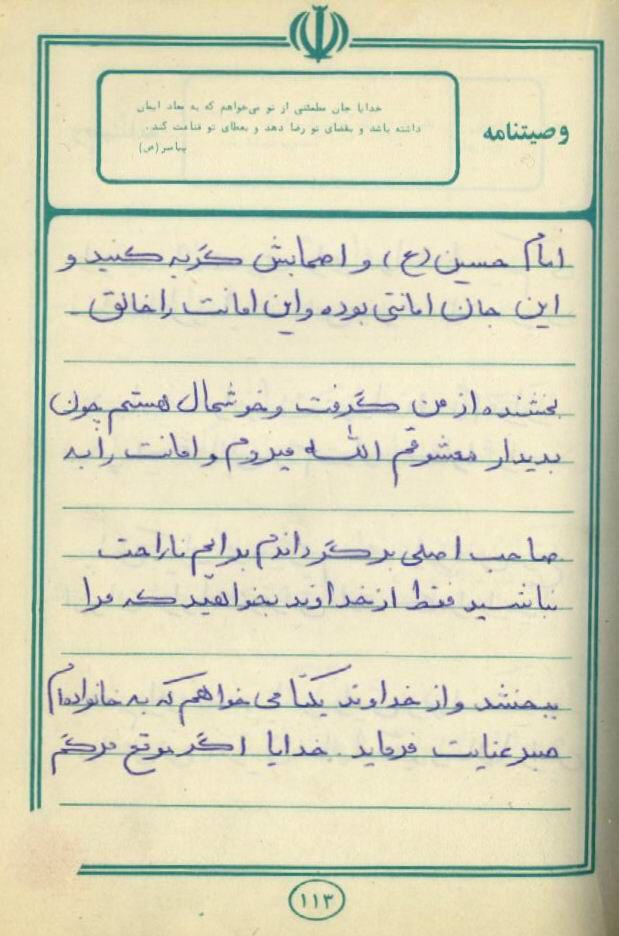 وصیتنامه
خدایا جان مطمئنی از تو می‌خواهم که به معاد ایمان
داشته باشد و بقضای تو رضا دهد و بعطای تو قناعت کند.
پیامبر (ص)
امام حسین (ع) و اصحابش گریه کنید و
این جان امانتی بوده و این امانت را خالق
بخشنده از من گرفت و خوشحال هستم چون
بدیدار معشوقم الله میروم و امانت را به
صاحب اصلی برگرداندم برایم ناراحت
نباشید فقط از خداوند بخواهید که مرا
ببخشد و از خداوند یکتا می خواهم که به خانواده‌ام
صبر عنایت فرماید. خدایا اگر موقع مرگم
۱۱۳